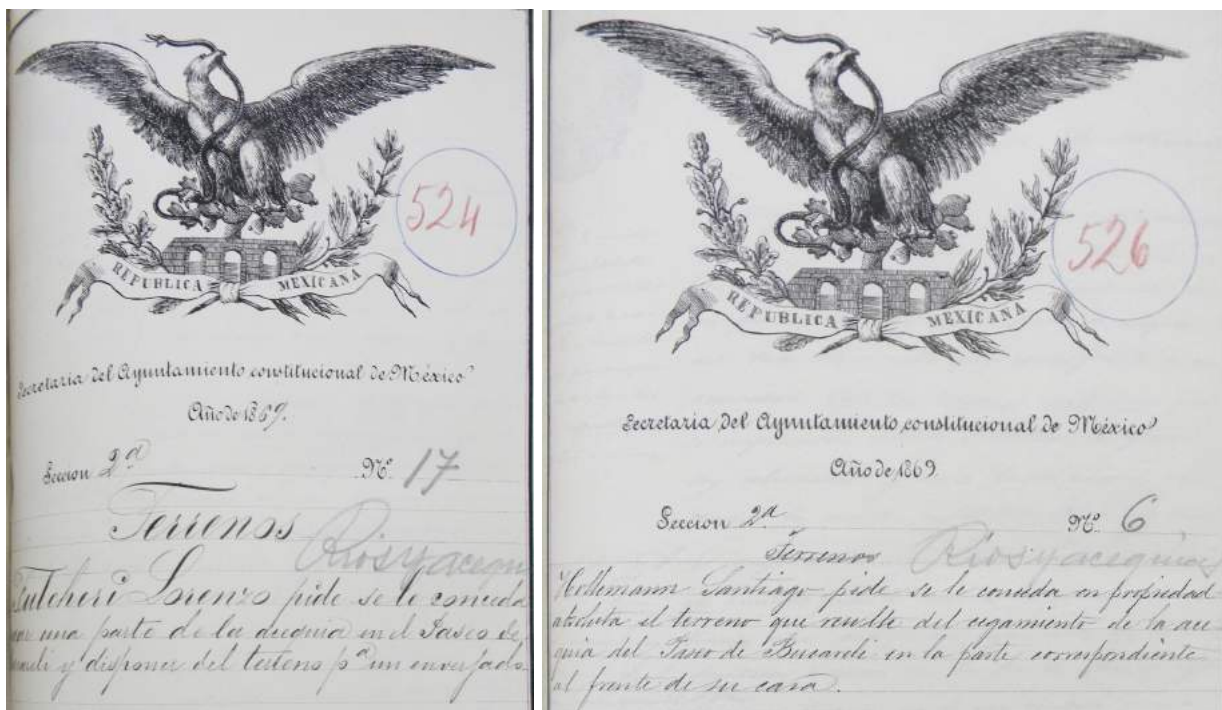 524
REPUBLICA MEXICANA
Secretaria del Ayuntamiento constitucional de México
Año de 1869.
Seccion 2ª Nº 17
Terrenos
Rios y acequi
Lorenzo pide se le conceda
una parte de la acequia en el Paseo de
y disponer del terreno pª un enverjado
526
REPUBLICA MEXICANA
Secretaria del Ayuntamiento constitucional de México
Año de 1869
Seccion 2ª Nº 6
Terrenos
Rios y acequias
Santiago pide se le conceda en propiedad
absoluta el terreno que resulte del cegamiento de la ace
quia del Paseo de Bucareli en la parte correspondiente
al frente de su casa.